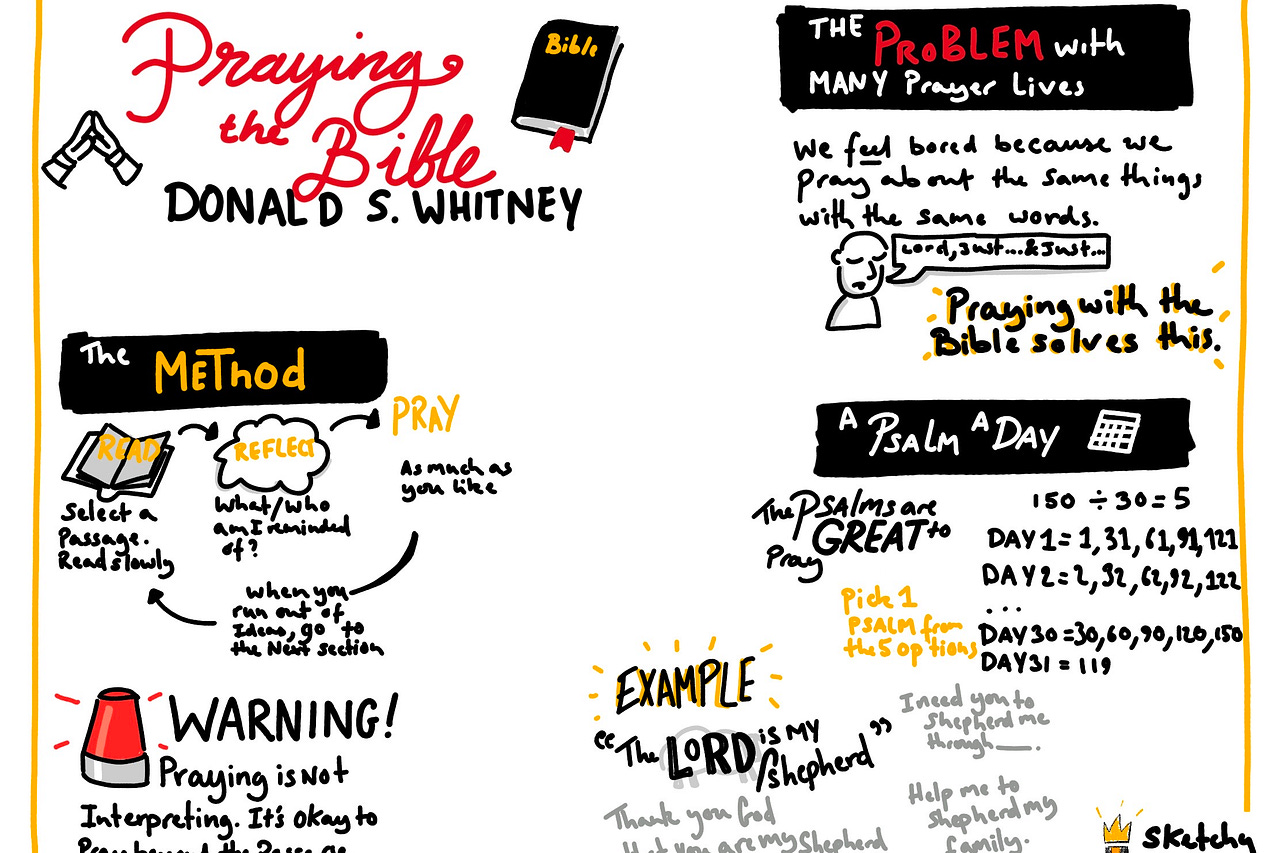 Praying
the Bible
DONALD S. WHITNEY
Bible
THE PROBLEM with
MANY Prayer Lives
We feel bored because we
pray about the same things
with the same words.
Lord, Just....& Just...
Praying with the
Bible solves this.
The METhod
READ
Select a
Passage.
Read slowly
REFLECT
What/Who
am I reminded
of?
PRAY
As much as
you like
When you
run out of
Ideas, go to
the Next section
A PSALM A DAY
The PSALMS are
GREAT to
Pray
150 ÷ 30 = 5
DAY 1 = 1, 31, 61, 91, 121
DAY 2 = 2, 32, 62, 92, 122
...
DAY 30 = 30, 60, 90, 120, 150
DAY 31 = 119
Pick 1
PSALM from
the 5 options
WARNING!
Praying is Not
Interpreting. It's okay to
Pray beyond the Passage
EXAMPLE
"The LORD is MY
shepherd"
Thank you God
that you are my Shepherd
I need you to
Shepherd me
through ___.
Help me to
shepherd my
family.
Sketchy